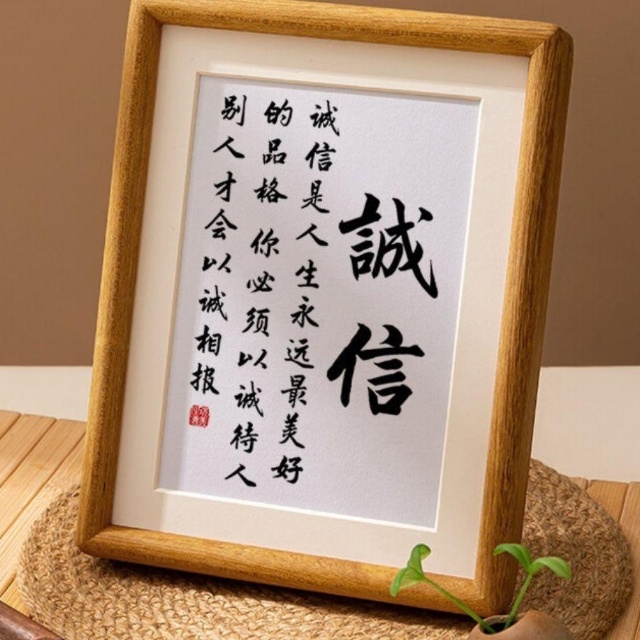 誠信
诚信是人生永远最美好
的品格 你必须以诚待人
别人才会以诚相报